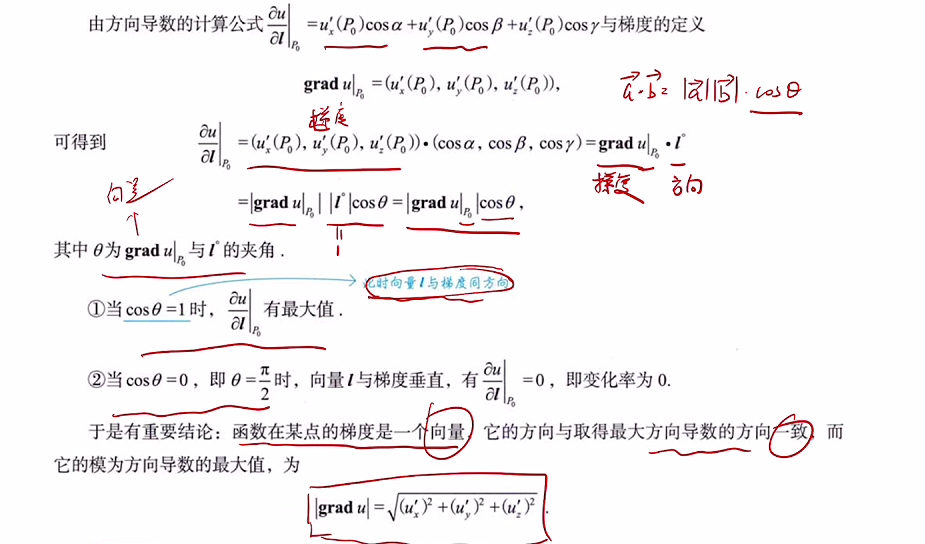 由方向导数的计算公式 ∂u/∂l|P₀ =u′ₓ(P₀)cosα+u′y(P₀)cosβ+u′z(P₀)cosγ与梯度的定义
grad u|P₀ =(u′ₓ(P₀), u′y(P₀), u′z(P₀)),
a⃗·b⃗= |a⃗||b⃗|·cosθ
梯度
可得到 ∂u/∂l|P₀ =(u′ₓ(P₀), u′y(P₀), u′z(P₀))·(cosα, cosβ, cosγ)=grad u|P₀·l°
梯度 方向
向量
=|grad u|P₀| |l°|cosθ=|grad u|P₀|cosθ,
1
其中θ为grad u|P₀与l°的夹角.
此时向量l与梯度同方向
①当cosθ=1时, ∂u/∂l|P₀ 有最大值.
②当cosθ=0, 即θ=π/2时, 向量l与梯度垂直, 有∂u/∂l|P₀ =0, 即变化率为0.
于是有重要结论: 函数在某点的梯度是一个向量, 它的方向与取得最大方向导数的方向一致, 而
它的模为方向导数的最大值, 为
|grad u|=√((u′ₓ)²+(u′y)²+(u′z)²).